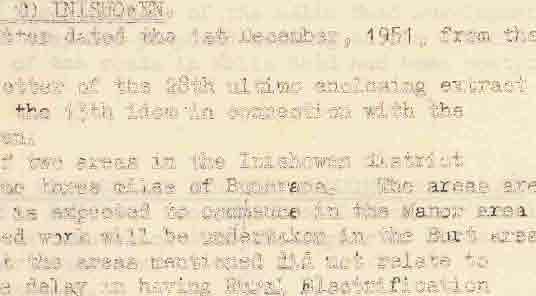 INISHOWEN
tter dated the 1st December, 1951, from the
etter of the 28th ultimo enclosing extract
the 15th idem in connection with the
wn.
f two areas in the Inishowen district
three miles of Buncrana. The areas are
is expected to commence in the Manor area
ed work will be undertaken in the Burt area
t the areas mentioned did not relate to
e delay in having Rural Electrification